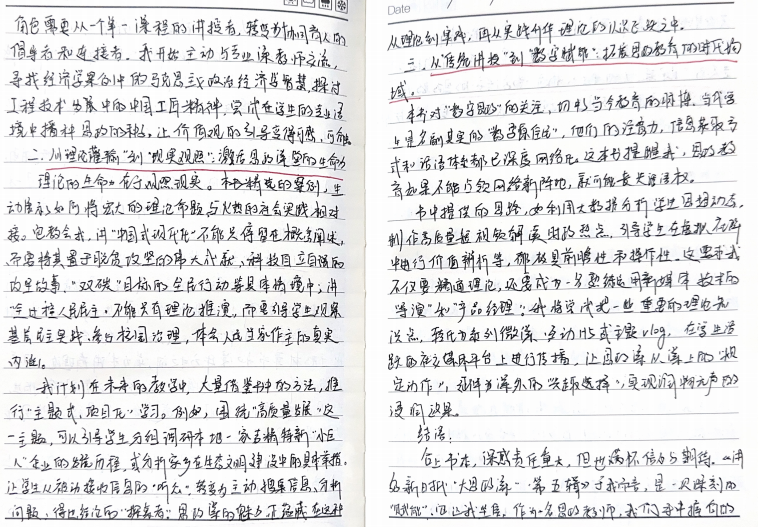 角色需要从一个单一课程的讲授者,转变为协同育人的
倡导者和连接者。我开始主动与专业课老师交流,
寻找经济学案例中的马克思主义政治经济学智慧,探讨
工程技术发展中的中国工匠精神,尝试在学生的专业语
境中播种思政的种子,让价值观的引导变得可感、可
二、从"理论灌输"到"现实观照":激活思政课堂的生命力
理论的生命力在于观照现实。本书精选的案例,生
动展示如何将宏大的理论命题与火热的社会实践相对
接。它教会我,讲"中国式现代化"不能只停留在概念阐述,
而要将其置于脱贫攻坚的伟大成就、科技自立自强的
故事、"双碳"目标的全民行动等具体情境中;讲
"全过程人民民主",不能只有理论推演,而要引导学生观察
基层民主实践、参与校园治理,体会人民当家作主的真实
内涵。
我计划在未来的教学中,大量借鉴书中的方法,推
行"主题式、项目化"学习。例如,围绕"高质量发展"这
一主题,可以引导学生分组调研本地一家专精特新"小巨
人"企业的发展历程,或分析家乡在生态文明建设中的具体举措。
让学生从被动接收信息的"听众",转变为主动搜集信息、分析
问题、得出结论的"探索者"。思政课的魅力正蕴藏在这种
Date
从理论到实践,再从实践升华理论的认识飞跃之中。
三、从"传统讲授"到"数字赋能":拓展思政教育的时代场
域。
本书对"数字思政"的关注,切中当今教育的脉搏。当代学
生是名副其实的"数字原住民",他们的注意力、信息获取方
式和话语体系都已深度网络化。这本书提醒我,思政教
育如果不能占领网络新阵地,就可能丧失话语权。
书中提供的思路,如利用大数据分析学生思想动态,
制作高质量短视频解读时政热点、引导学生在虚拟
中进行价值辨析等,都极具前瞻性和操作性。这要求我
不仅要精通理论,还要成为一名熟练运用新媒体技术的
"导演"和"产品经理"。我将尝试把一些重要的理论知
识点,转化为系列微课、互动H5或主题vlog,在学生活
跃的社交媒体平台上进行传播,让思政课从课上的"规
定动作",延伸为课外的"兴趣选择",实现润物无声的
浸润效果。
结语:
合上书本,深感责任重大,但也满怀信心与期待。《讲
新时代"大思政课"第五辑》于我而言,是一次深刻的
"赋能"。它让我坚信,作为一名思政教师,我们手中握有的